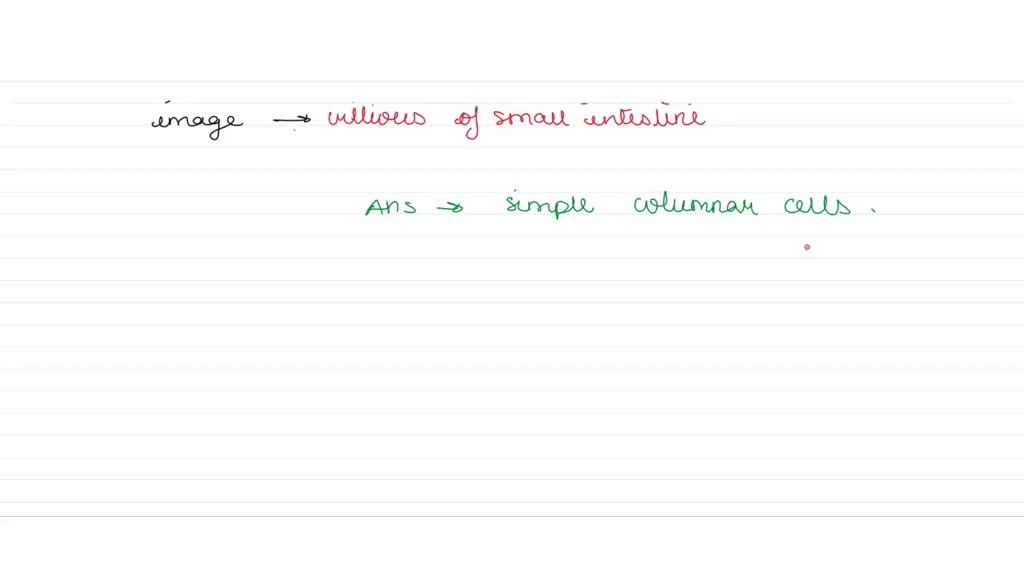 image → villious of small intestine
Ans → simple columnar cells .